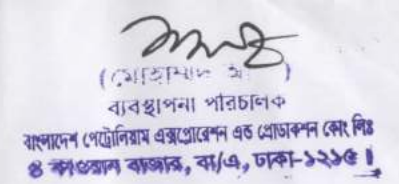 (মোহাম্মদ )
ব্যবস্থাপনা পরিচালক
বাংলাদেশ পেট্রোলিয়াম এক্সপ্লোরেশন এন্ড প্রোডাকশন কোং লিঃ
৪ কাওরান বাজার, বা/এ, ঢাকা-১২১৫।